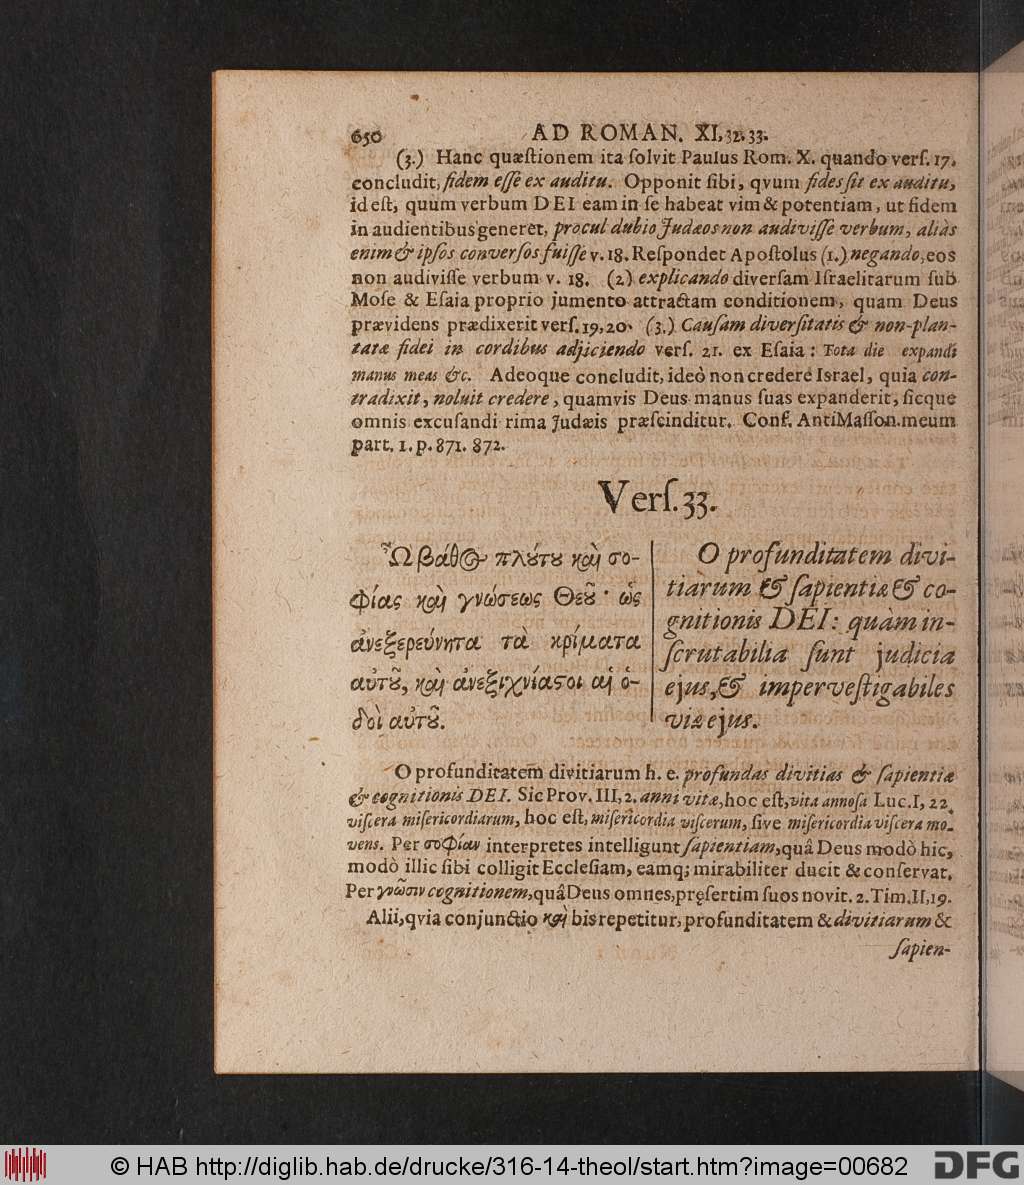 650 AD ROMAN. XI, 32. 33.
(3.) Hanc quæſtionem ita ſolvit Paulus Rom. X. quando verſ. 17.
concludit, fidem eſſe ex auditu. Opponit ſibi, qvum fides ſit ex auditu,
id eſt, quum verbum DEI eam in ſe habeat vim & potentiam, ut fidem
in audientibus generet, procul dubio Judæos non audiviſſe verbum, aliàs
enim & ipſos converſos fuiſſe v. 18. Reſpondet Apoſtolus (1.) negando, eos
non audiviſſe verbum v. 18. (2) explicando diverſam Iſraelitarum ſub
Moſe & Eſaia proprio jumento attractam conditionem, quam Deus
prævidens prædixerit verſ. 19, 20. (3.) Cauſam diverſitatis & non-plan-
tatæ fidei in cordibus adjiciendo verſ. 21. ex Eſaia: Tota die expandi
manus meas &c. Adeoque concludit, ideò non credere Israel, quia con-
tradixit, noluit credere, quamvis Deus manus ſuas expanderit, ſicque
omnis excuſandi rima Judæis præſcinditur. Conf. AntiMaſſon. meum
part. 1. p. 871. 872.
Verſ. 33.
Ὦ βάθος πλούτου καὶ σο-
φίας καὶ γνώσεως Θεοῦ· ὡς
ἀνεξερεύνητα τὰ κρίματα
αὐτοῦ, καὶ ἀνεξιχνίαστοι αἱ ὁ-
δοὶ αὐτοῦ.
O profunditatem divi-
tiarum & ſapientiæ & co-
gnitionis DEI: quàm in-
ſcrutabilia ſunt judicia
ejus, & imperveſtigabiles
viæ ejus.
O profunditatem divitiarum h. e. profundas divitias & ſapientiæ
& cognitionis DEI. Sic Prov. III, 2. anni vitæ, hoc eſt, vita annoſa Luc. I, 22.
viſcera miſericordiarum, hoc eſt, miſericordia viſcerum, ſive miſericordia viſcera mo-
vens. Per σοφίαν interpretes intelligunt ſapientiam, quâ Deus modò hic,
modò illic ſibi colligit Eccleſiam, eamq; mirabiliter ducit & conſervat.
Per γνῶσιν cognitionem, quâ Deus omnes, pręſertim ſuos novit. 2. Tim. II, 19.
Alii, qvia conjunctio καὶ bis repetitur, profunditatem & divitiarum &
ſapien-
© HAB http://diglib.hab.de/drucke/316-14-theol/start.htm?image=00682
DFG